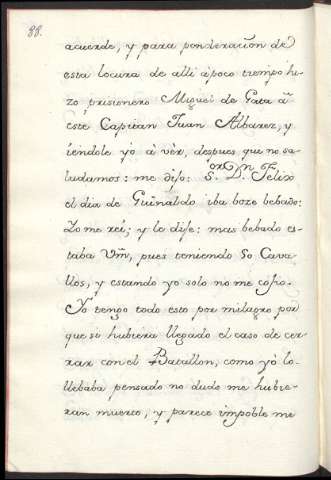 88.
acuerde, y para ponderacion de
esta locura de alli à poco tiempo hi-
zo prisionero Miguel de Gata â
este Capitan Juan Albarez, y
iendole yò à vèr, despues que no sa-
ludamos: me dijo: S.or D.n Felix
el dia de Guinaldo iba boze bebado:
Yo me reí; y le dije: mas bebado es-
taba Vm̃, pues teniendo 50 Cava-
llos, y estando yo solo no me cojio.
Yo tengo todo esto por milagro por
que si hubiera llegado el caso de cer-
rar con el Batallon, como yò lo-
llebaba pensado no dudo me hubie-
ran muerto, y parece impoble me